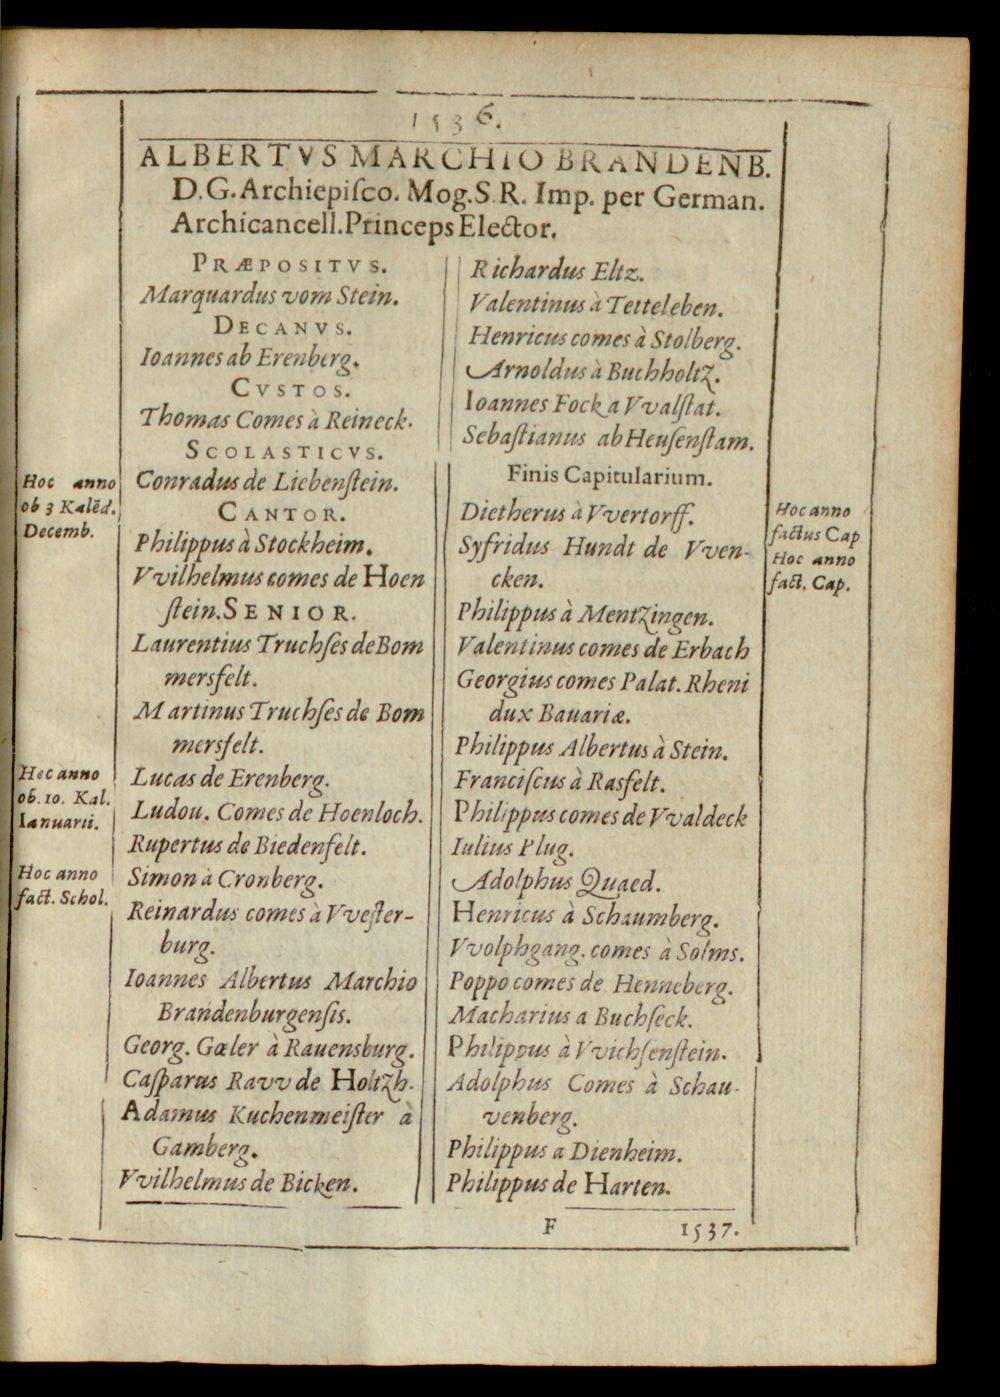 1536.
ALBERTVS MARCHIO BRANDENB.
D.G.Archiepiſco. Mog.S.R. Imp. per German.
Archicancell.Princeps Elector.
PRÆPOSITVS.
Marquardus vom Stein.
DECANVS.
Ioannes ab Erenberg.
CVSTOS.
Thomas Comes à Reineck.
SCOLASTICVS.
Hoc anno
ob 3 Kalẽd.
Decemb.
Conradus de Liebenſtein.
CANTOR.
Philippus à Stockheim.
Vvilhelmus comes de Hoen
ſtein.SENIOR.
Laurentius Truchſes de Bom
mersfelt.
Martinus Truchſes de Bom
mersfelt.
Hoc anno
ob. 10. Kal.
Ianuarii.
Lucas de Erenberg.
Ludou. Comes de Hoenloch.
Rupertus de Biedenfelt.
Hoc anno
fact. Schol.
Simon à Cronberg.
Reinardus comes à Vveſter-
burg.
Ioannes Albertus Marchio
Brandenburgenſis.
Georg. Gœler à Rauensburg.
Caſparus Ravv de Holtzh.
Adamus Kuchenmeiſter à
Gamberg.
Vvilhelmus de Bicken.
Richardus Eltz.
Valentinus à Tetteleben.
Henricus comes à Stolberg.
Arnoldus à Buchholtz.
Ioannes Fock a Vvalſtat.
Sebaſtianus ab Heuſenſtam.
Finis Capitularium.
Dietherus à Vvertorff.
Hoc anno
factus Cap
Syfridus Hundt de Vven-
cken.
Hoc anno
fact. Cap.
Philippus à Mentzingen.
Valentinus comes de Erbach
Georgius comes Palat. Rheni
dux Bauariæ.
Philippus Albertus à Stein.
Franciſcus à Rasfelt.
Philippus comes de Vvaldeck
Iulius Plug.
Adolphus Quaed.
Henricus à Schaumberg.
Vvolphgang. comes à Solms.
Poppo comes de Henneberg.
Macharius a Buchſeck.
Philippus à Vvichſenſtein.
Adolphus Comes à Schau-
venberg.
Philippus a Dienheim.
Philippus de Harten.
F 1537.